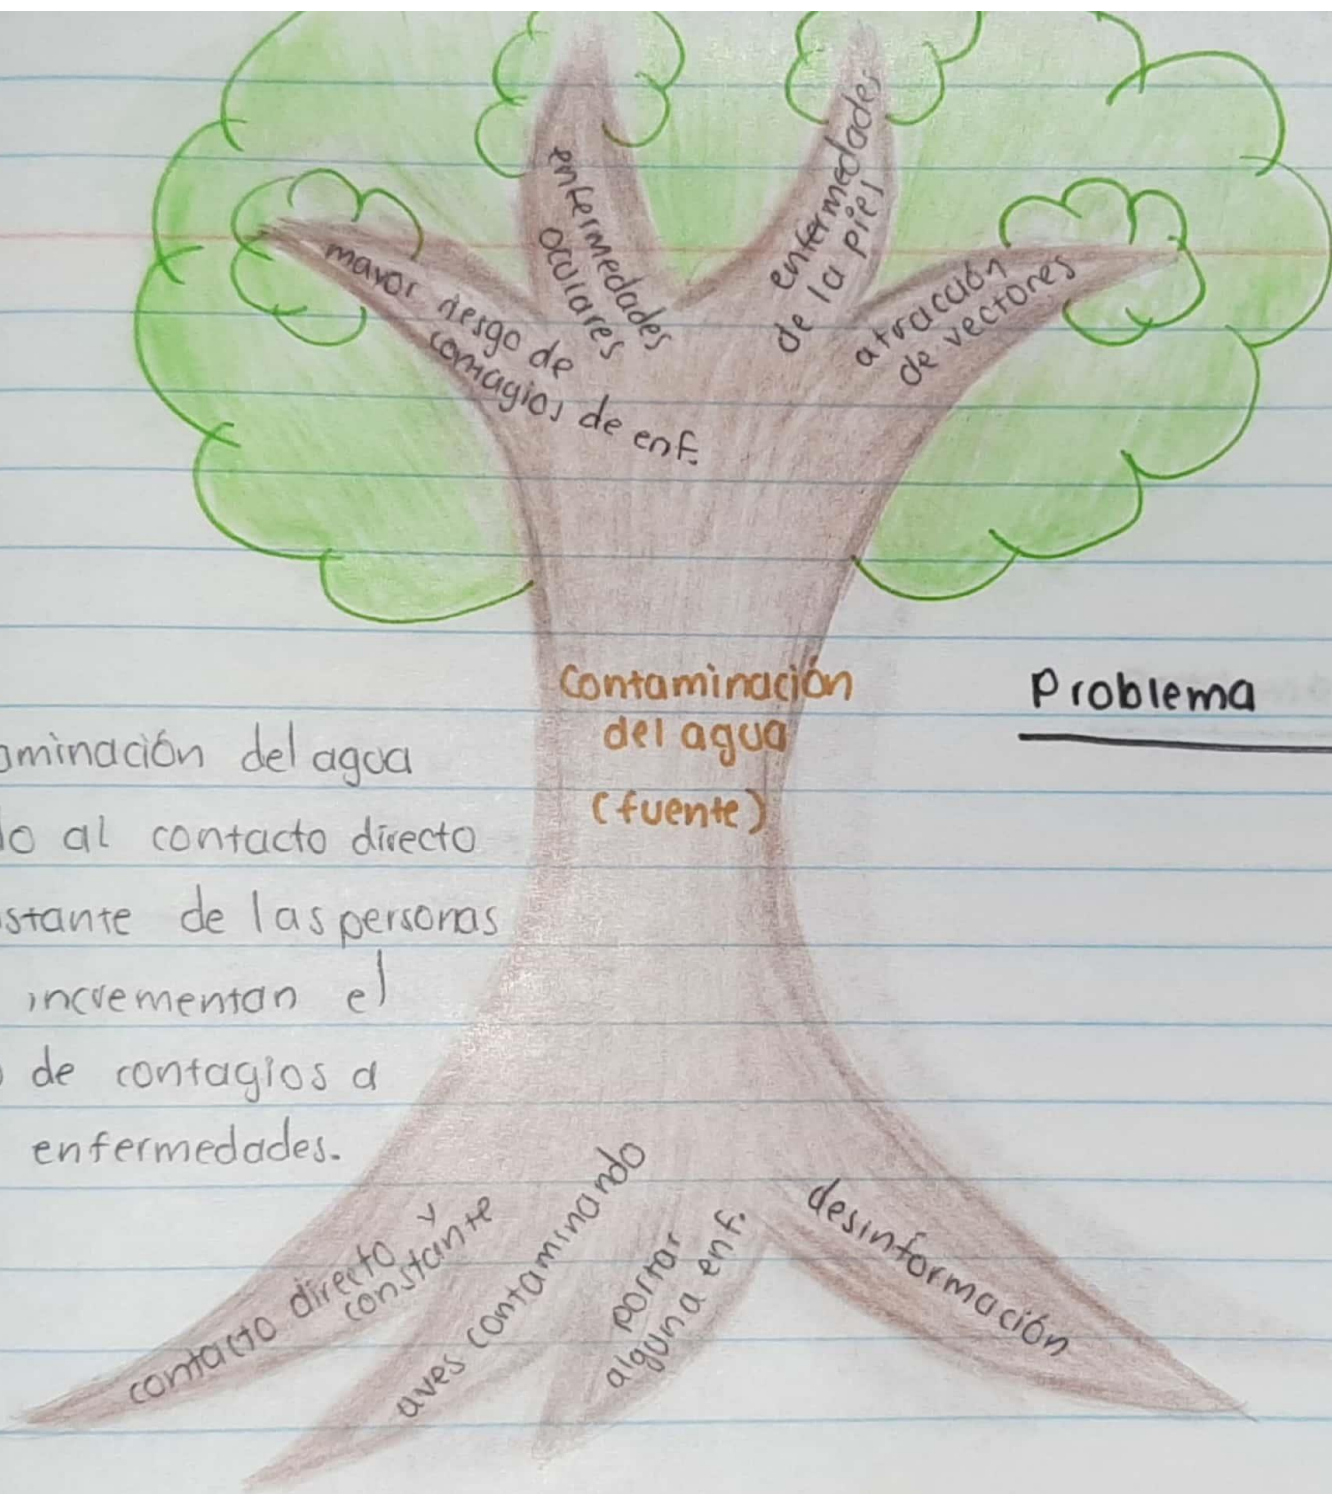 enfermedades
oculares
enfermedades
de la piel
mayor riesgo de
contagios de enf.
atracción
de vectores
Contaminación
del agua
(fuente)
Problema
aminación del agua
do al contacto directo
stante de las personas
incrementan el
de contagios a
enfermedades.
contacto directo y
constante
aves contaminando
portar
alguna enf.
desinformación